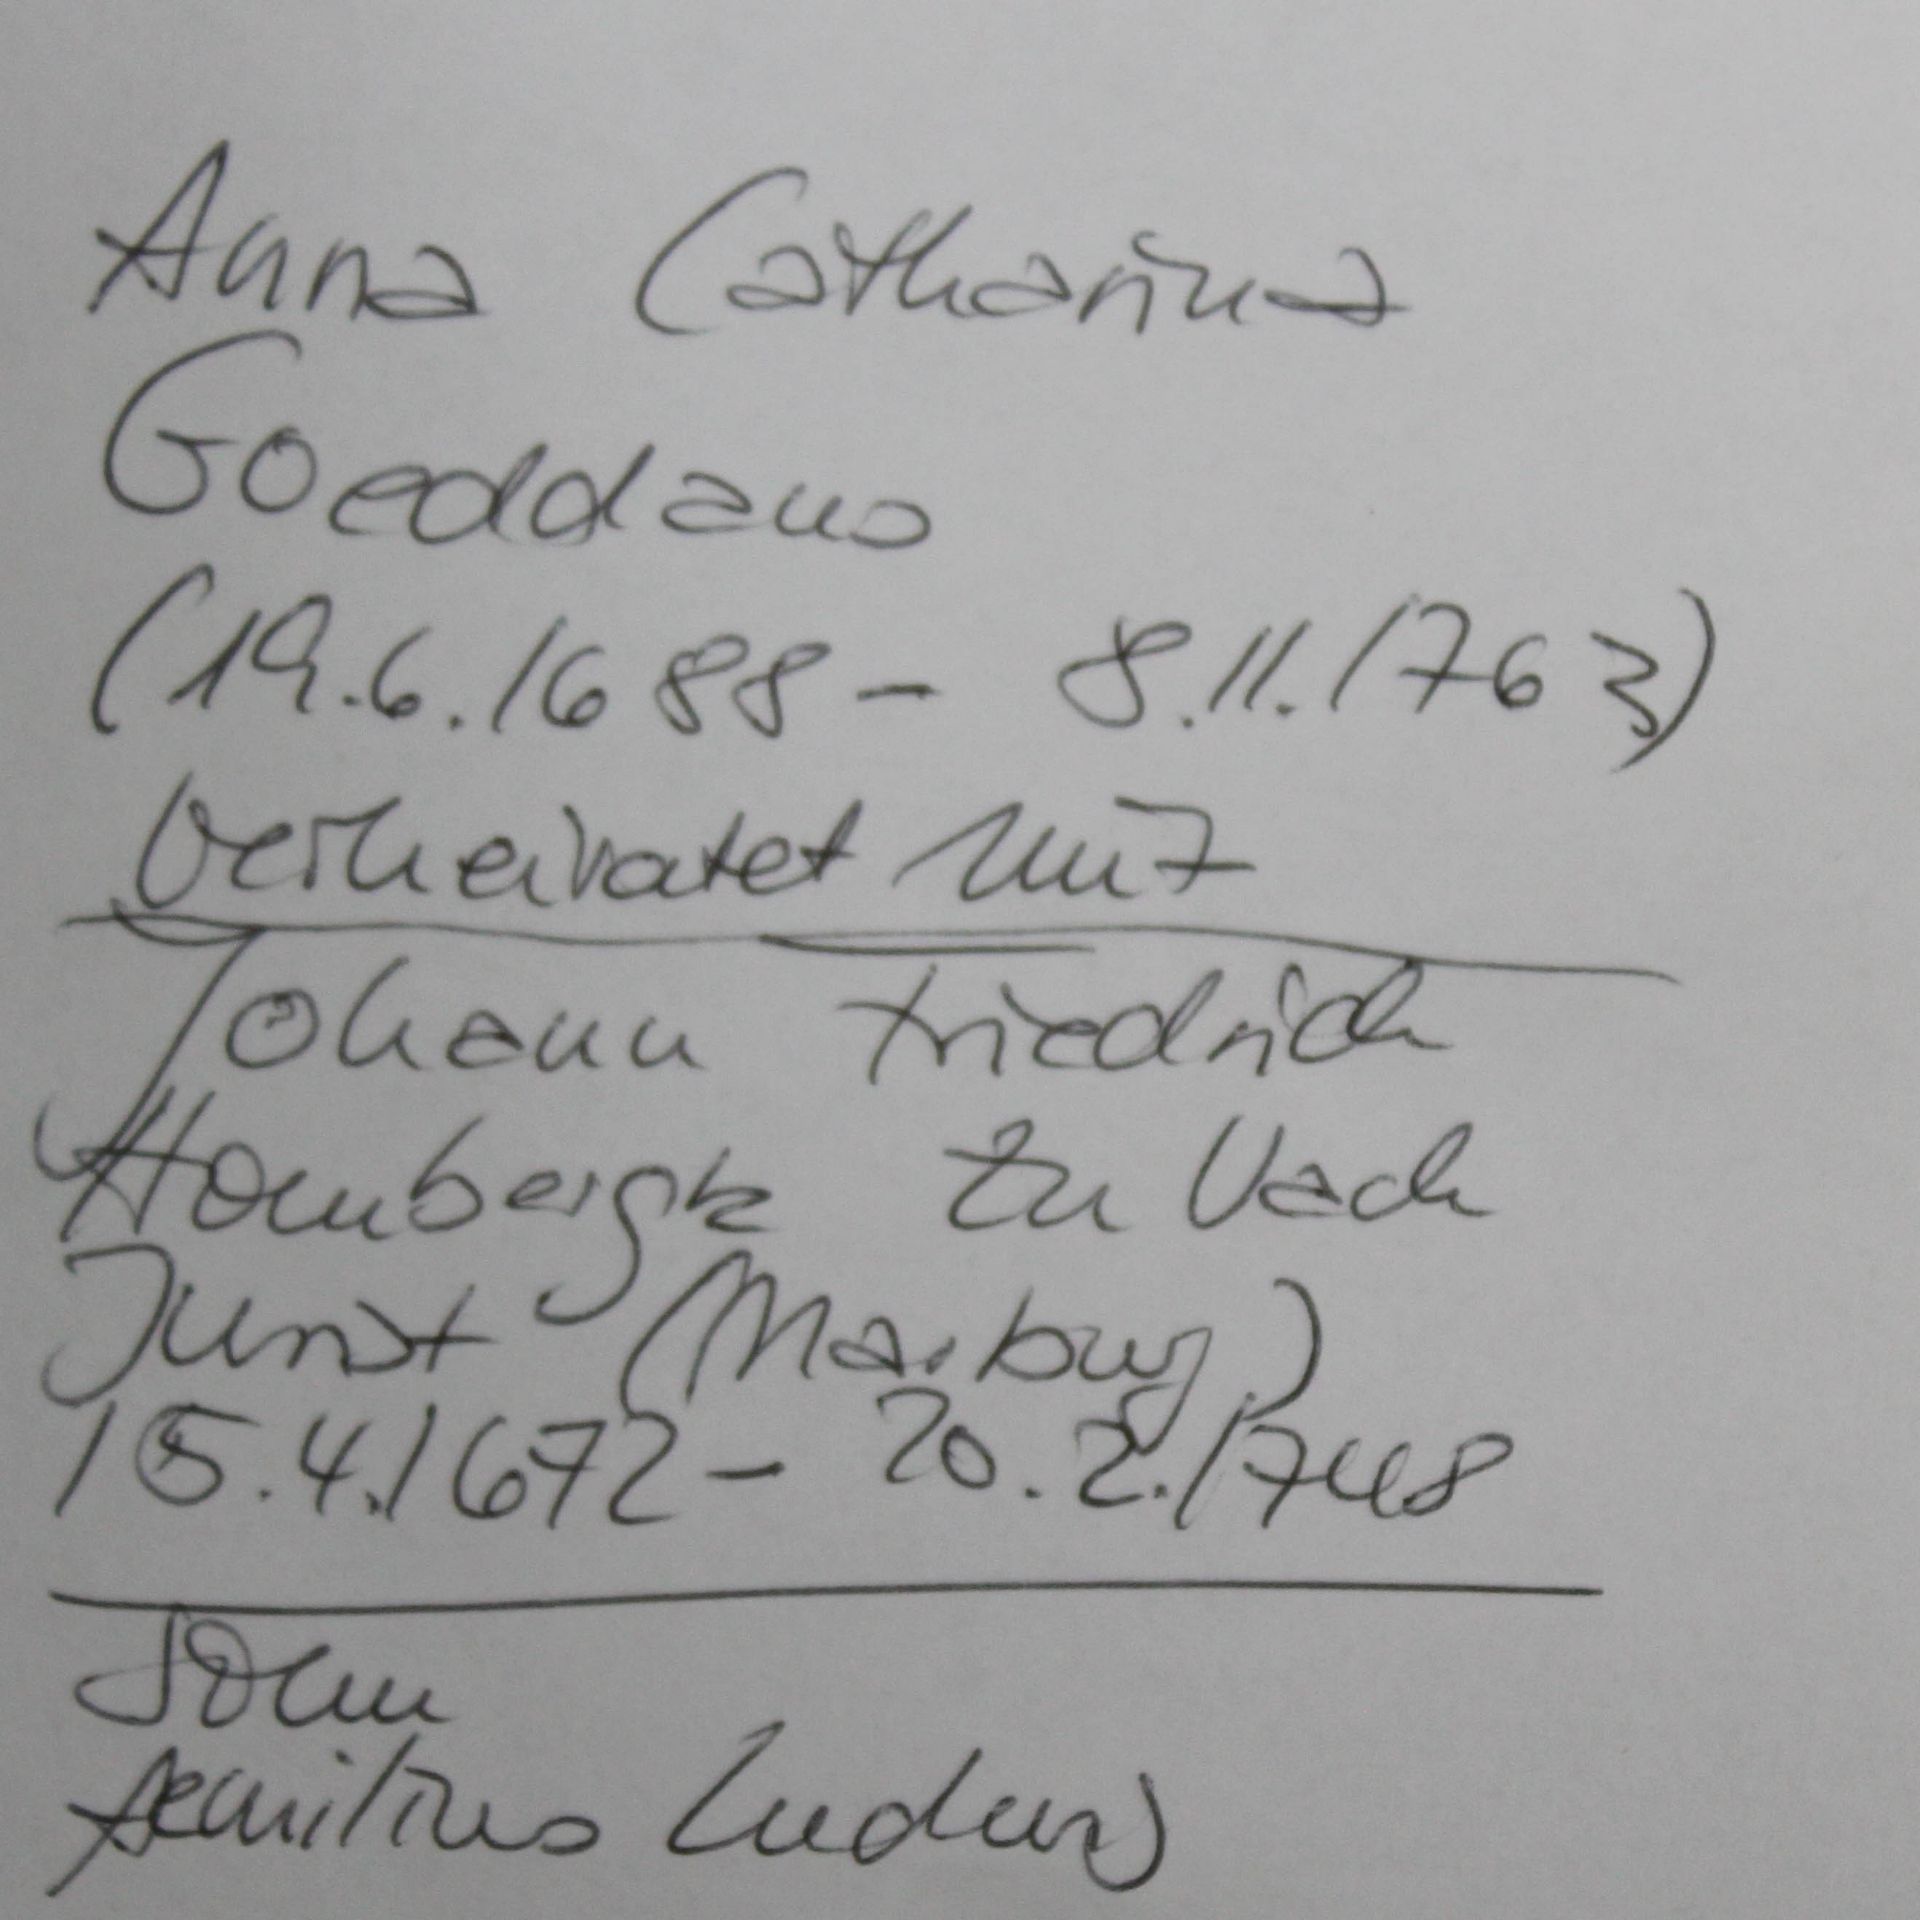 Anna Catharina
Goeddaus
(19.6.1688 - 8.11.1763)
verheiratet mit
Johann Friedrich
Hombergk zu Vach
Jurist (Marburg)
15.4.1672 - 20.2.1748
Sohn
Aemilius Ludwig